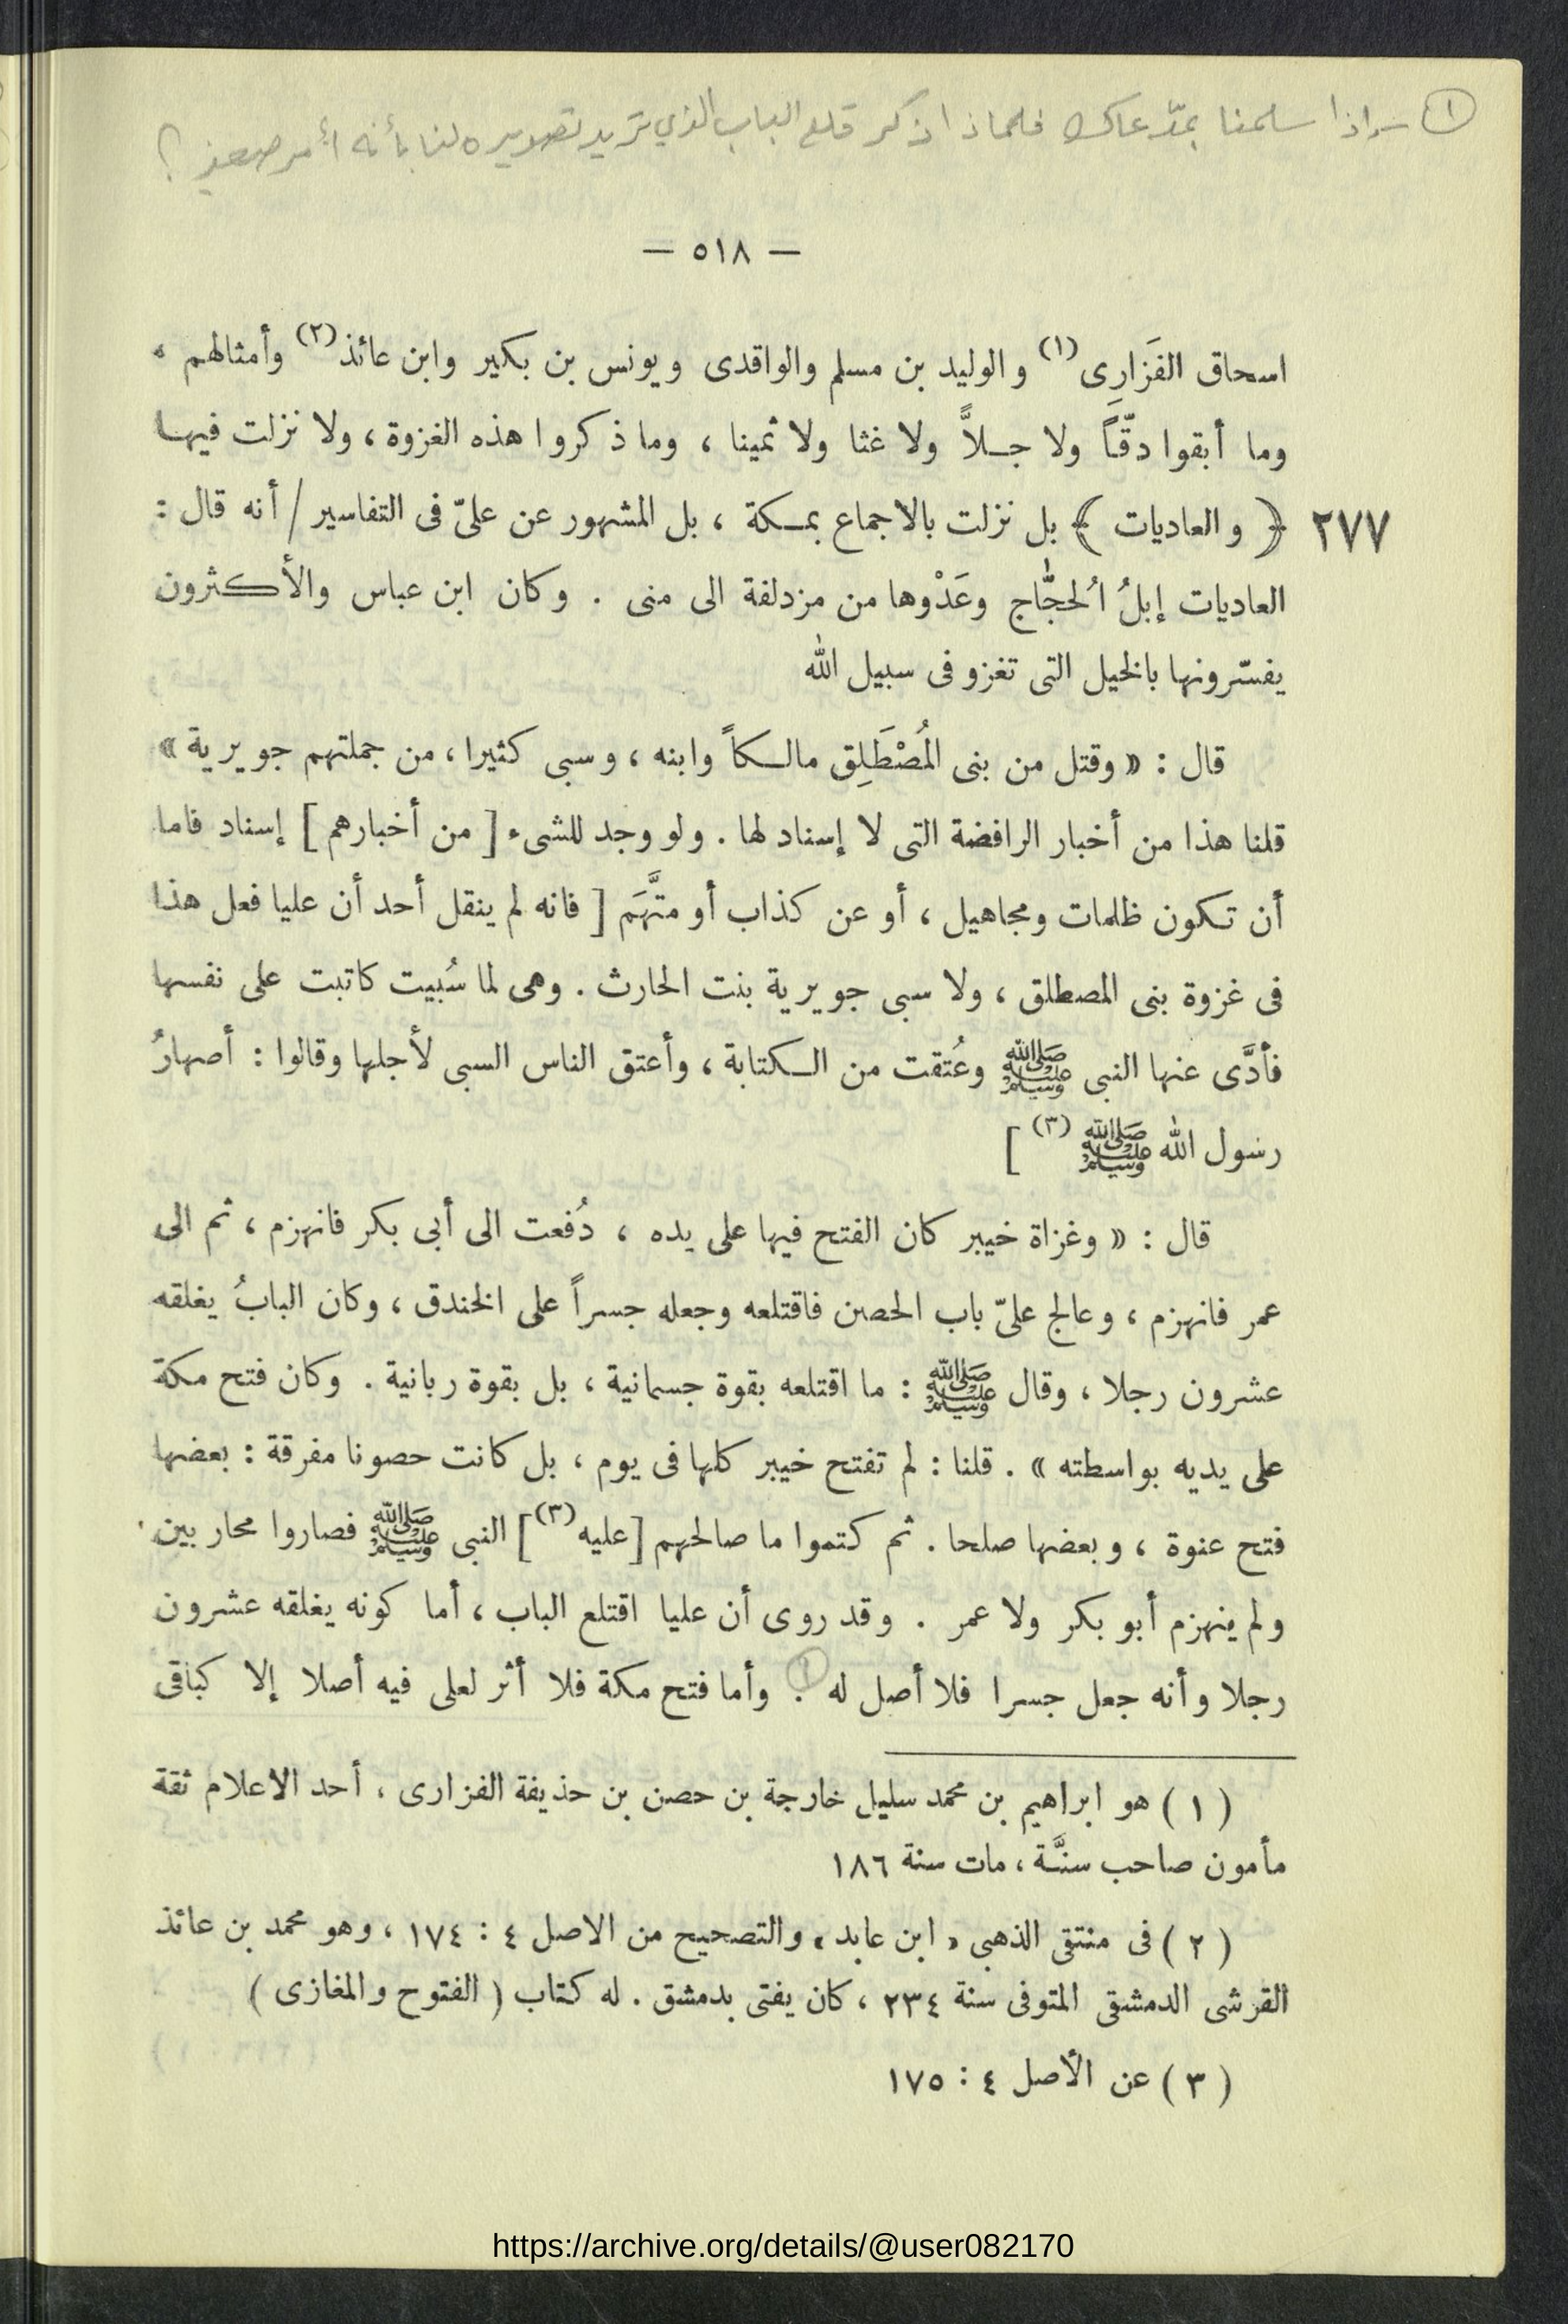 ١ - واذا سلمنا بمدّعاك فلماذا ذكر قلع الباب الذي تريد تصويره لنا بأنه أمر صعب ؟
— ٥١٨ —
اسحاق الفَزَارِى(١) والوليد بن مسلم والواقدى ويونس بن بكير وابن عائذ(٢) وأمثالهم ،
وما أبقوا دقّاً ولا جلاًّ ولا غثا ولا ثمينا ، وما ذكروا هذه الغزوة ، ولا نزلت فيها
﴿ والعاديات ﴾ بل نزلت بالاجماع بمكة ، بل المشهور عن علىّ فى التفاسير / أنه قال : ٢٧٧
العاديات إبلُ الُحجَّاج وعَدْوها من مزدلفة الى منى . وكان ابن عباس والأكثرون
يفسّرونها بالخيل التى تغزو فى سبيل الله
قال : « وقتل من بنى المُصْطَلِق مالكاً وابنه ، وسبى كثيرا ، من جملتهم جويرية »
قلنا هذا من أخبار الرافضة التى لا إسناد لها . ولو وجد للشىء [ من أخبارهم ] إسناد فاما
أن تكون ظلمات ومجاهيل ، أو عن كذاب أو متَّهَم [ فانه لم ينقل أحد أن عليا فعل هذا
فى غزوة بنى المصطلق ، ولا سبى جويرية بنت الحارث . وهى لما سُبيت كاتبت على نفسها
فأدَّى عنها النبى ﷺ وعُتقت من الكتابة ، وأعتق الناس السبى لأجلها وقالوا : أصهارُ
رسول الله ﷺ (٣) ]
قال : « وغزاة خيبر كان الفتح فيها على يده ، دُفعت الى أبى بكر فانهزم ، ثم الى
عمر فانهزم ، وعالج علىّ باب الحصن فاقتلعه وجعله جسراً على الخندق ، وكان البابُ يغلقه
عشرون رجلا ، وقال ﷺ : ما اقتلعه بقوة جسمانية ، بل بقوة ربانية . وكان فتح مكة
على يديه بواسطته » . قلنا : لم تفتح خيبر كلها فى يوم ، بل كانت حصونا مفرقة : بعضها
فتح عنوة ، وبعضها صلحا . ثم كتموا ما صالحهم [عليه(٣)] النبى ﷺ فصاروا محاربين .
ولم ينهزم أبو بكر ولا عمر . وقد روى أن عليا اقتلع الباب ، أما كونه يغلقه عشرون
رجلا وأنه جعل جسرا فلا أصل له ١ . وأما فتح مكة فلا أثر لعلى فيه أصلا إلا كباقى
( ١ ) هو ابراهيم بن محمد سليل خارجة بن حصن بن حذيفة الفزارى ، أحد الاعلام ثقة
مأمون صاحب سنَّة ، مات سنة ١٨٦
( ٢ ) فى منتقى الذهبى « ابن عابد » والتصحيح من الاصل ٤ : ١٧٤ ، وهو محمد بن عائذ
القرشى الدمشقى المتوفى سنة ٢٣٤ ، كان يفتى بدمشق . له كتاب ( الفتوح والمغازى )
( ٣ ) عن الأصل ٤ : ١٧٥
https://archive.org/details/@user082170